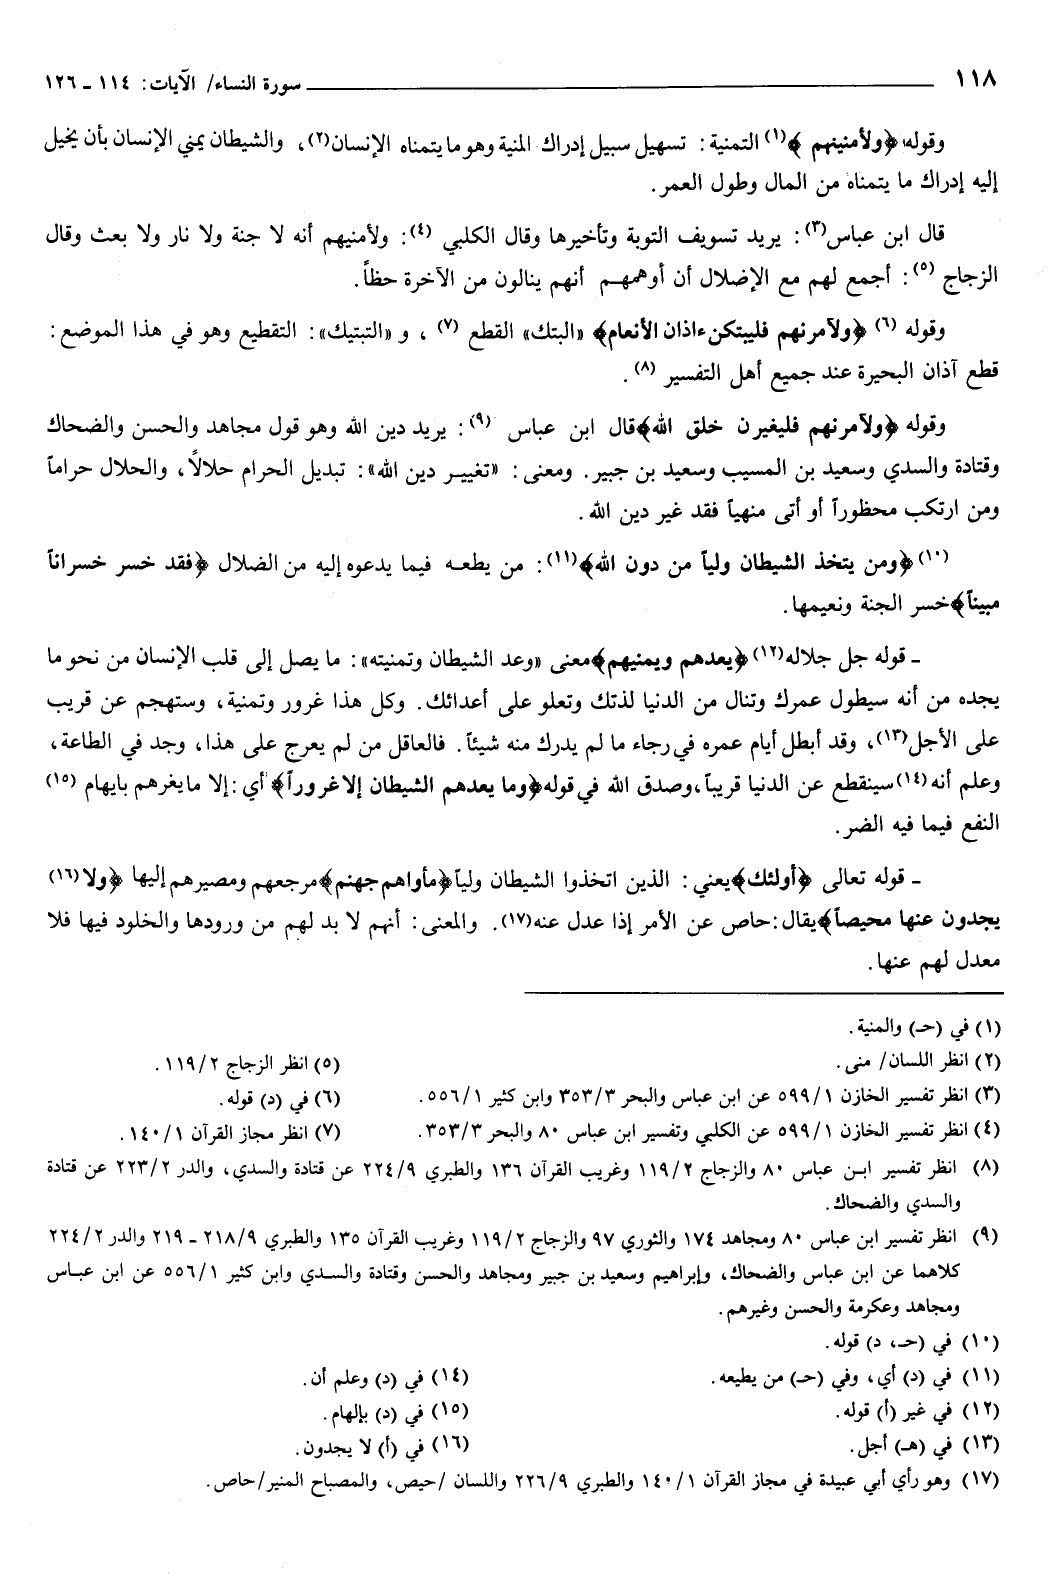 ١١٨ سورة النساء/ الآيات: ١١٤ ـ ١٢٦
وقوله ﴿ولأمنينهم ﴾(١) التمنية: تسهيل سبيل إدراك المنية وهو ما يتمناه الإنسان(٢)، والشيطان يمني الإنسان بأن يخيل
إليه إدراك ما يتمناه من المال وطول العمر.
قال ابن عباس(٣): يريد تسويف التوبة وتأخيرها وقال الكلبي (٤): ولأمنيهم أنه لا جنة ولا نار ولا بعث وقال
الزجاج (٥): أجمع لهم مع الإضلال أن أوهمهم أنهم ينالون من الآخرة حظاً.
وقوله (٦) ﴿ولآمرنهم فليبتكن ءاذان الأنعام﴾ «البتك» القطع (٧) ، و «التبتيك»: التقطيع وهو في هذا الموضع:
قطع آذان البحيرة عند جميع أهل التفسير (٨).
وقوله ﴿ولآمرنهم فليغيرن خلق الله﴾ قال ابن عباس (٩): يريد دين الله وهو قول مجاهد والحسن والضحاك
وقتادة والسدي وسعيد بن المسيب وسعيد بن جبير. ومعنى: «تغيير دين الله»: تبديل الحرام حلالاً، والحلال حراماً
ومن ارتكب محظوراً أو أتى منهياً فقد غير دين الله.
(١٠) ﴿ومن يتخذ الشيطان ولياً من دون الله﴾(١١): من يطعه فيما يدعوه إليه من الضلال ﴿فقد خسر خسراناً
مبيناً﴾ خسر الجنة ونعيمها.
ـ قوله جل جلاله(١٢) ﴿يعدهم ويمنيهم﴾ معنى «وعد الشيطان وتمنيته»: ما يصل إلى قلب الإنسان من نحو ما
يجده من أنه سيطول عمرك وتنال من الدنيا لذتك وتعلو على أعدائك. وكل هذا غرور وتمنية، وستهجم عن قريب
على الأجل(١٣)، وقد أبطل أيام عمره في رجاء ما لم يدرك منه شيئاً. فالعاقل من لم يعرج على هذا، وجد في الطاعة،
وعلم أنه(١٤) سينقطع عن الدنيا قريباً، وصدق الله في قوله ﴿وما يعدهم الشيطان إلا غروراً﴾ أي: إلا ما يغرهم بايهام (١٥)
النفع فيما فيه الضر.
ـ قوله تعالى ﴿أولئك﴾ يعني: الذين اتخذوا الشيطان ولياً ﴿مأواهم جهنم﴾ مرجعهم ومصيرهم إليها ﴿ولا(١٦)
يجدون عنها محيصاً﴾ يقال: حاص عن الأمر إذا عدل عنه(١٧). والمعنى: أنهم لا بد لهم من ورودها والخلود فيها فلا
معدل لهم عنها.
(١) في (حـ) والمنية.
(٢) انظر اللسان/ منى. (٥) انظر الزجاج ٢/١١٩.
(٣) انظر تفسير الخازن ١/٥٩٩ عن ابن عباس والبحر ٣/٣٥٣ وابن كثير ١/٥٥٦. (٦) في (د) قوله.
(٤) انظر تفسير الخازن ١/٥٩٩ عن الكلبي وتفسير ابن عباس ٨٠ والبحر ٣/٣٥٣. (٧) انظر مجاز القرآن ١/١٤٠.
(٨) انظر تفسير ابن عباس ٨٠ والزجاج ٢/١١٩ وغريب القرآن ١٣٦ والطبري ٩/٢٢٤ عن قتادة والسدي، والدر ٢/٢٢٣ عن قتادة
والسدي والضحاك.
(٩) انظر تفسير ابن عباس ٨٠ ومجاهد ١٧٤ والثوري ٩٧ والزجاج ٢/١١٩ وغريب القرآن ١٣٥ والطبري ٩/٢١٨ ـ ٢١٩ والدر ٢/٢٢٤
كلاهما عن ابن عباس والضحاك، وإبراهيم وسعيد بن جبير ومجاهد والحسن وقتادة والسدي وابن كثير ١/٥٥٦ عن ابن عباس
ومجاهد وعكرمة والحسن وغيرهم.
(١٠) في (حـ، د) قوله.
(١١) في (د) أي، وفي (حـ) من يطيعه. (١٤) في (د) وعلم أن.
(١٢) في غير (أ) قوله. (١٥) في (د) بإلهام.
(١٣) في (هـ) أجل. (١٦) في (أ) لا يجدون.
(١٧) وهو رأي أبي عبيدة في مجاز القرآن ١/١٤٠ والطبري ٩/٢٢٦ واللسان /حيص، والمصباح المنير/حاص.